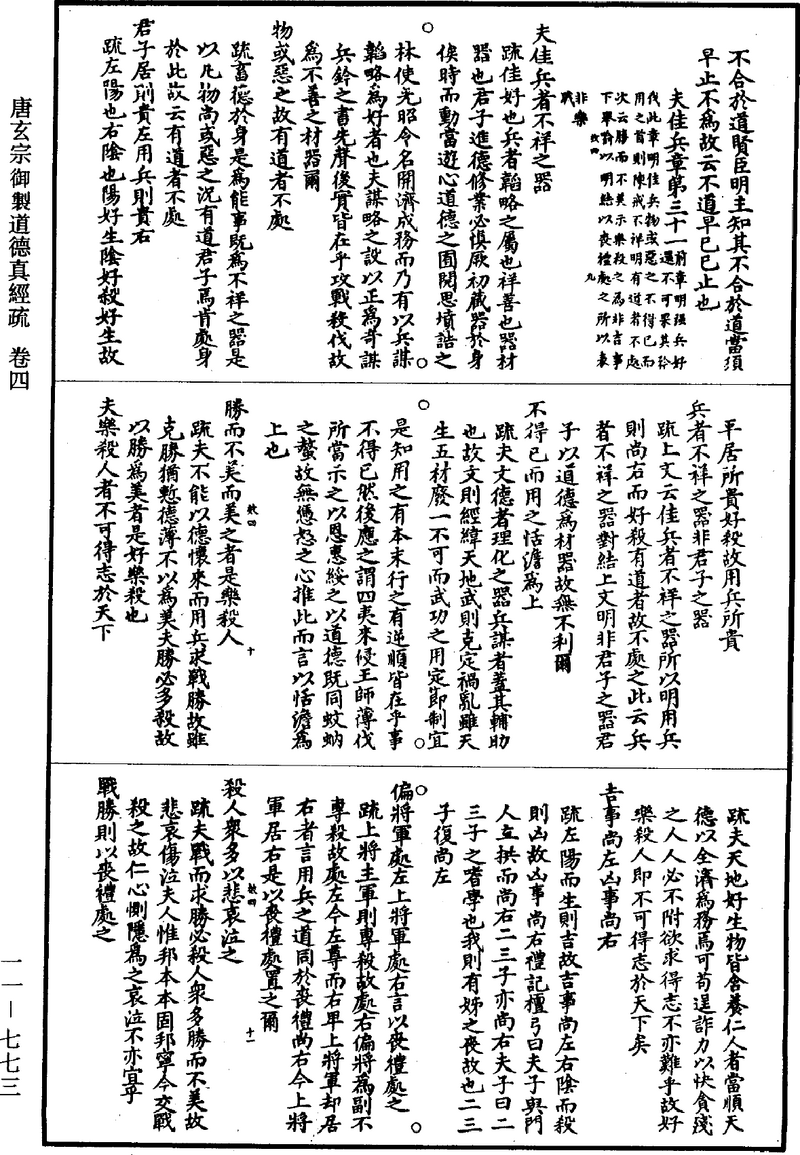 唐玄宗御製道德真經疏　卷四
不合於道賢臣明主知其不合於道當須
早止不為故云不道早已已止也
夫佳兵章第三十一
前章明強兵好還不可果其矜
伐此章明佳兵物或惡之不得已而
用之首則陳戒不祥明有道者不處
次云勝而不美示樂殺之為非吉事
下舉前以明㫮以喪禮處之所以表
非樂戰
效四
九
夫佳兵者不祥之器
疏佳好也兵者韜略之屬也祥善也器材
器也君子進德修業必慎厥初藏器於身
俟時而動當遊心道德之囿閱思墳誥之
林使光昭令名開濟成務而乃有以兵謀
韜略為好者也夫謀略之設以正為奇謀
兵鈐之書先聲後實皆在乎攻戰殺伐故
為不善之材器爾
物或惡之故有道者不處
疏畜德於身是為能事既為不祥之器是
以凡物尚或惡之況有道君子焉肯處身
於此故云有道者不處
君子居則貴左用兵則貴右
疏左陽也右陰也陽好生陰好殺好生故
平居所貴好殺故用兵所貴
兵者不祥之器非君子之器
疏上文云佳兵者不祥之器所以明用兵
則尚右而好殺有道者故不處之此云兵
者不祥之器對結上文明非君子之器君
子以道德為材器故無不利爾
不得已而用之恬澹為上
疏夫文德者理化之器兵謀者蓋其輔助
也故文則經緯天地武則克定禍亂雖天
生五材廢一不可而武功之用定節制宜
是知用之有本末行之有逆順皆在乎事
不得已然後應之謂四夷來侵王師薄伐
所當示之以恩惠綏之以道德既同蚊蚋
之螫故無憑怒之心推此而言以恬澹為
上也
勝而不美而美之者是樂殺人
效四
十
疏夫不能以德懷來而用兵求戰勝故雖
克勝猶慙德薄不以為美夫勝必多殺故
以勝為美者是好樂殺也
夫樂殺人者不可得志於天下
疏夫天地好生物皆含養仁人者當順天
德以全濟為務焉可苟逞詐力以快貪殘
之人人必不附欲求得志不亦難乎故好
樂殺人即不可得志於天下矣
吉事尚左凶事尚右
疏左陽而生則吉故吉事尚左右陰而殺
則凶故凶事尚右禮記檀弓曰夫子與門
人立拱而尚右二三子亦尚右夫子曰二
三子之嗜學也我則有姊之喪故也二三
子復尚左
偏將軍處左上將軍處右言以喪禮處之
疏上將主軍則專殺故處右偏將為副不
專殺故處左今左尊而右卑上將軍却居
右者言用兵之道同於喪禮尚右今上將
軍居右是以喪禮處置之爾
殺人衆多以悲哀泣之
效四
十一
疏夫戰而求勝必殺人衆多勝而不美故
悲哀傷泣夫人惟邦本本固邦寧今交戰
殺之故仁心惻隱為之哀泣不亦宜乎
戰勝則以喪禮處之
一一—七七三